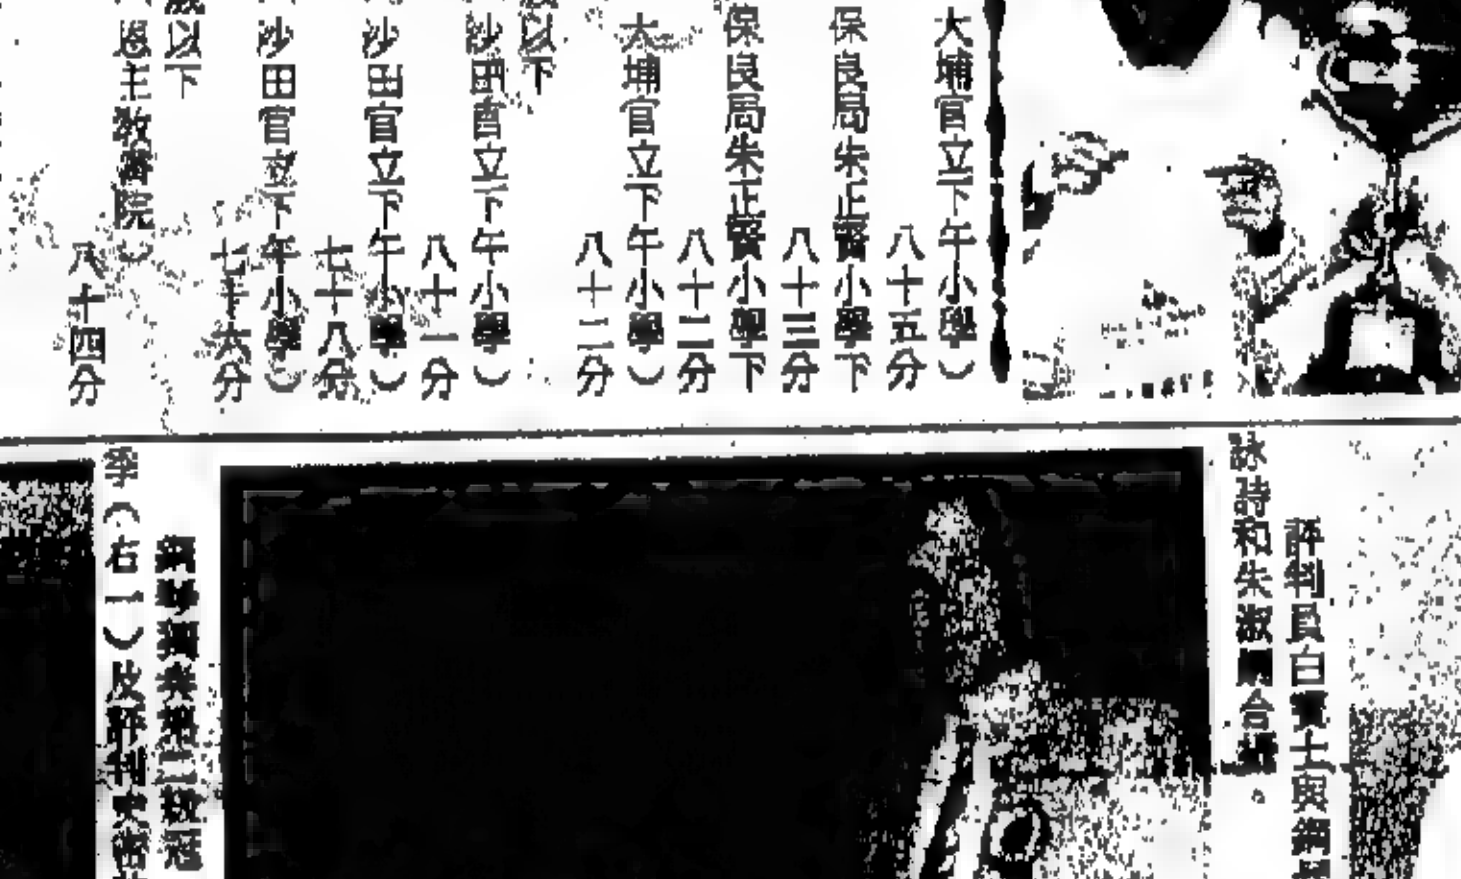 大埔官立下午小學）
八十五分
保良局朱正賢小學下
八十三分
保良局朱正賢小學下
八十二分
大埔官立下午小學）
八十二分
以下
沙田官立下午小學）
八十一分
沙田官立下午小學）
七十八分
沙田官立下午小學）
七十六分
歲以下
恩主教書院）
八十四分
評判員白寶士與鋼
詠詩和朱淑 合 。
鋼琴獨奏 三 冠
季（右一）及評判史